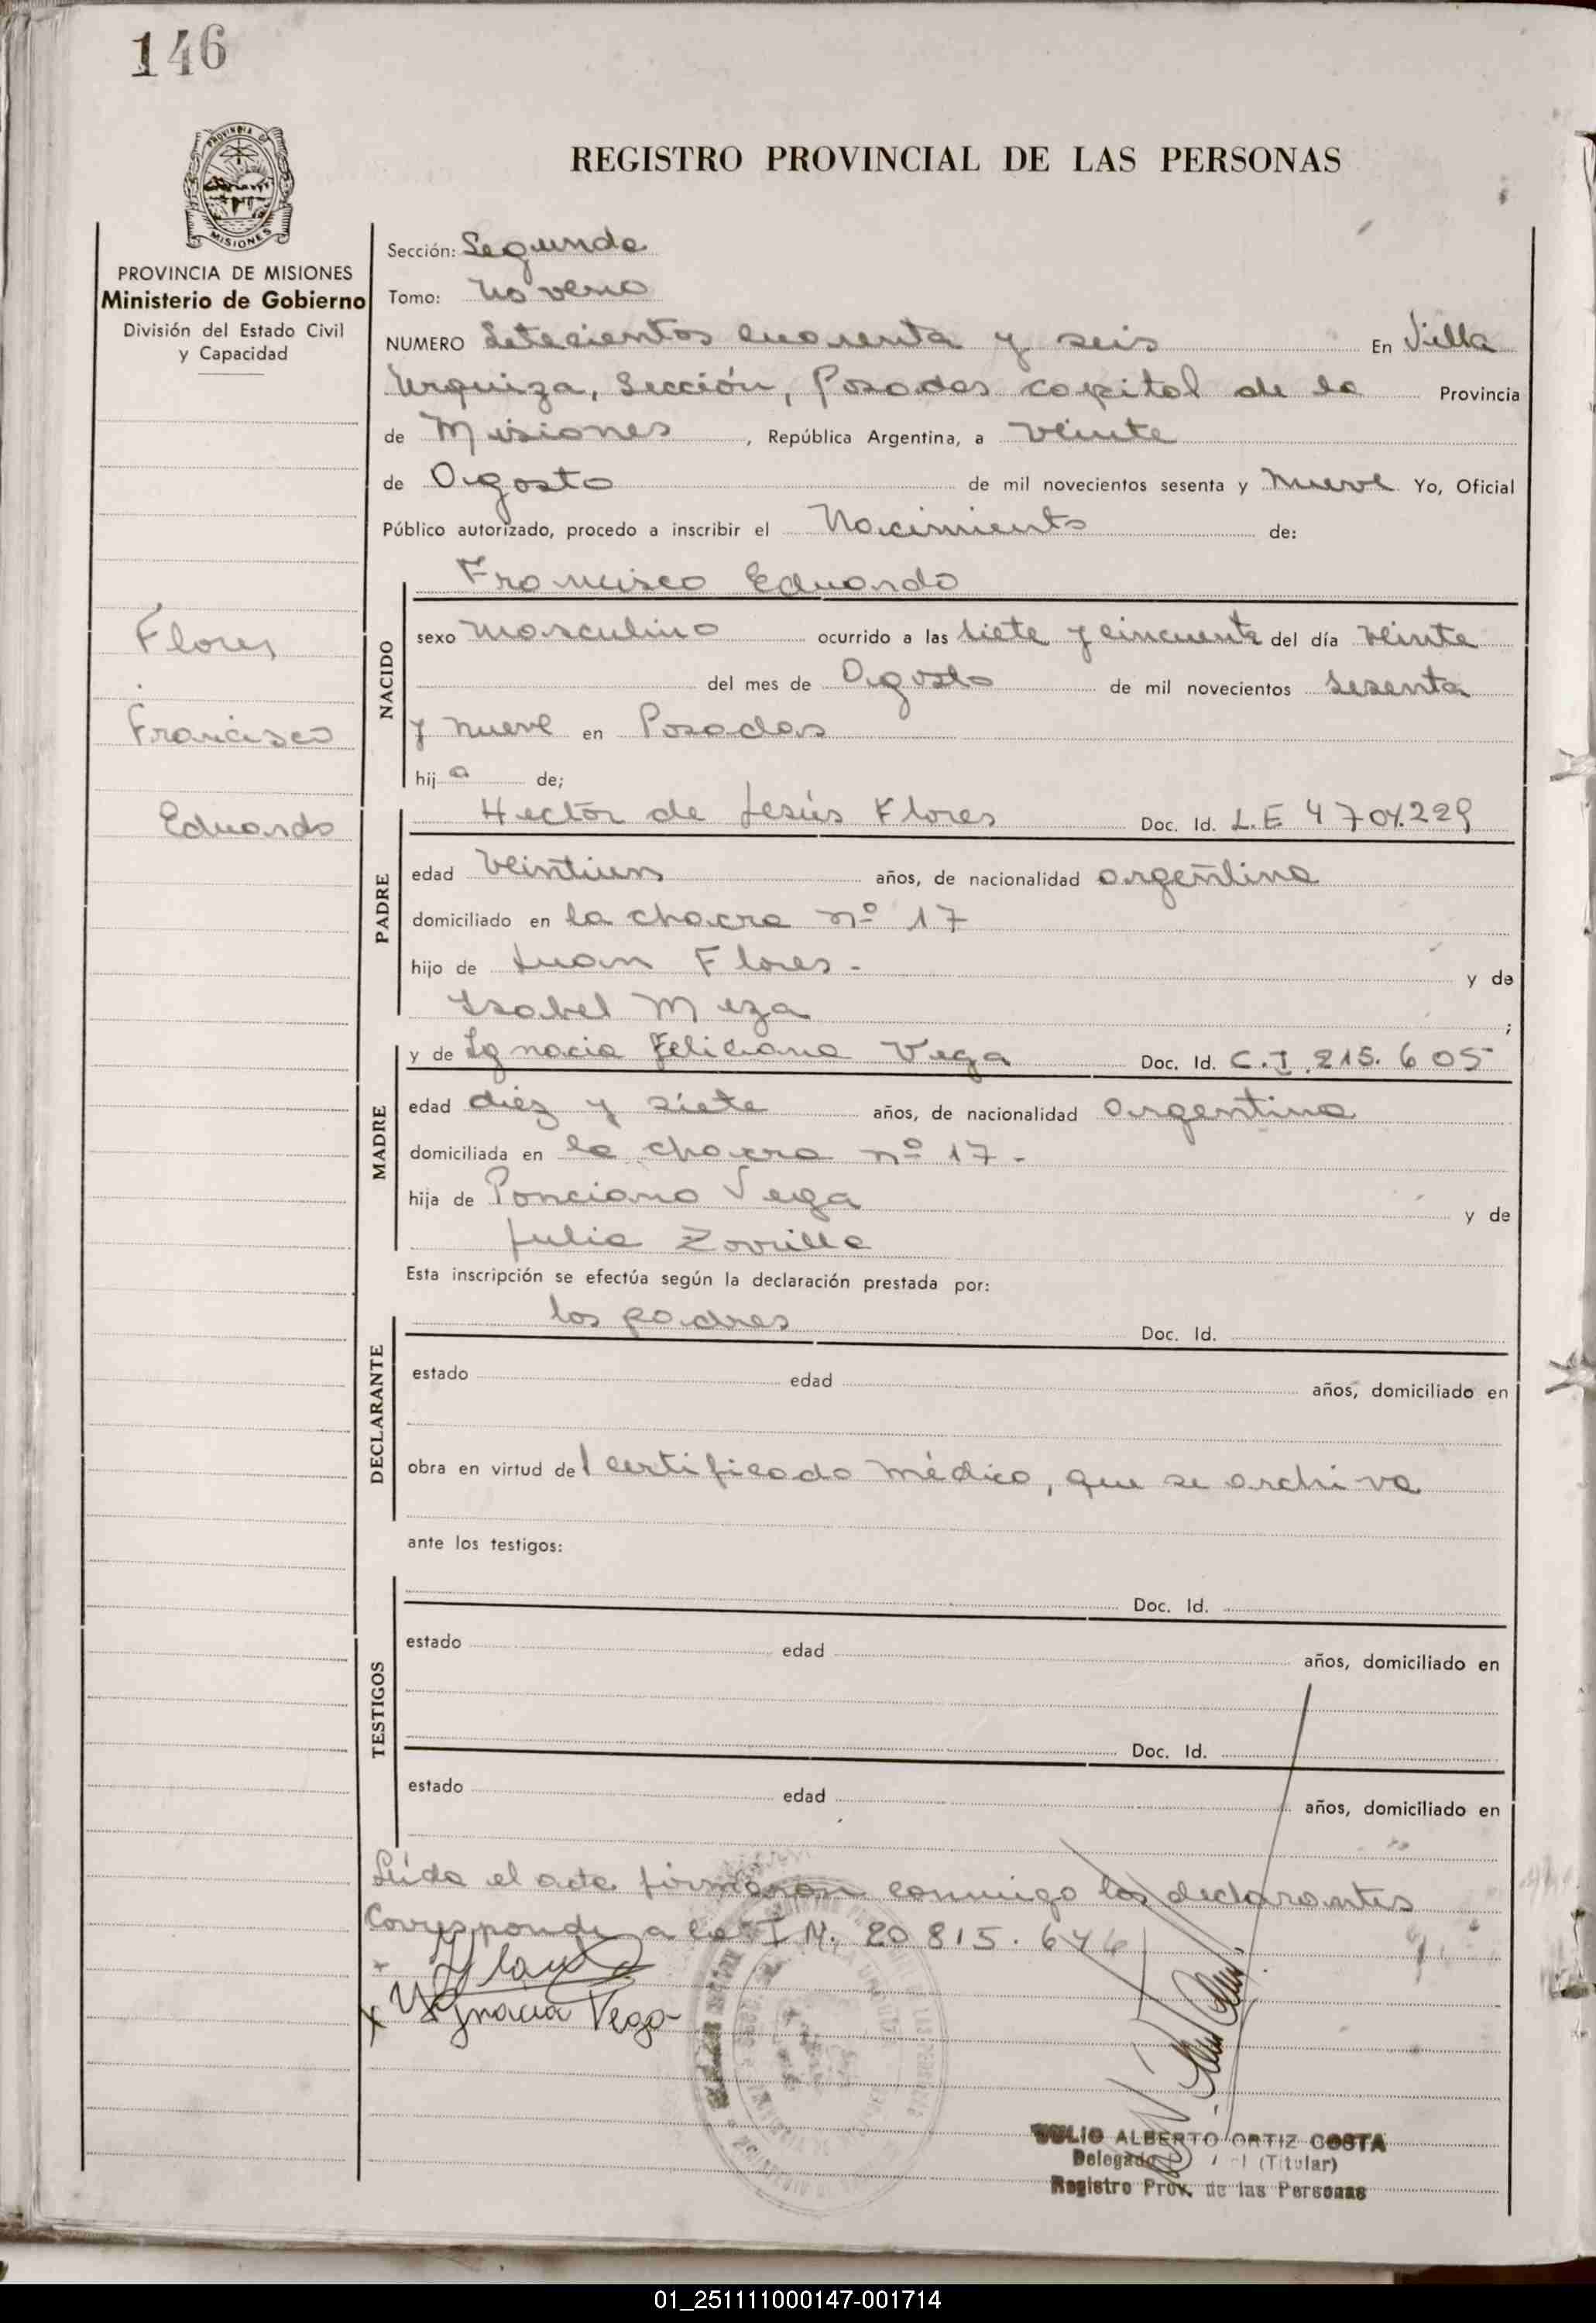 146
PROVINCIA DE
MISIONES
REGISTRO PROVINCIAL DE LAS PERSONAS
PROVINCIA DE MISIONES
Ministerio de Gobierno
División del Estado Civil
y Capacidad
Flores
Francisco
Eduardo
Sección: Segunda
Tomo: Noveno
NUMERO Setecientos cuarenta y seis En Villa
Urquiza, Sección, Posadas capital de la Provincia
de Misiones, República Argentina, a veinte
de Agosto de mil novecientos sesenta y nueve Yo, Oficial
Público autorizado, procedo a inscribir el Nacimiento de:
Francisco Eduardo
NACIDO
sexo masculino ocurrido a las siete y cincuenta del día veinte
del mes de Agosto de mil novecientos sesenta
y nueve en Posadas
hij o de;
PADRE
Hector de Jesús Flores Doc. Id. L.E 4704.229
edad veintiun años, de nacionalidad argentina
domiciliado en la chacra nº 17
hijo de Juan Flores - y de
Isabel Meza ;
MADRE
y de Ignacia Feliciana Vega Doc. Id. C.I. 215.605
edad diez y siete años, de nacionalidad argentina
domiciliada en la chacra nº 17 -
hija de Ponciano Vega y de
Julia Zorrilla
Esta inscripción se efectúa según la declaración prestada por:
DECLARANTE
los padres Doc. Id.
estado edad años, domiciliado en
obra en virtud del certificado médico, que se archiva
ante los testigos:
TESTIGOS
Doc. Id.
estado edad años, domiciliado en
Doc. Id.
estado edad años, domiciliado en
Leida el acta firmaron conmigo los declarantes
Corresponde a la I M. 20 815. 646
Ignacia Vega
JULIO ALBERTO ORTIZ COSTA
Delegado (Titular)
Registro Prov. de las Personas
01_251111000147-001714